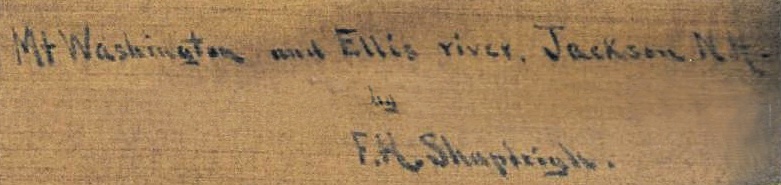 Mt Washington and Ellis river, Jackson N.H.
by
F.H. Shapleigh.